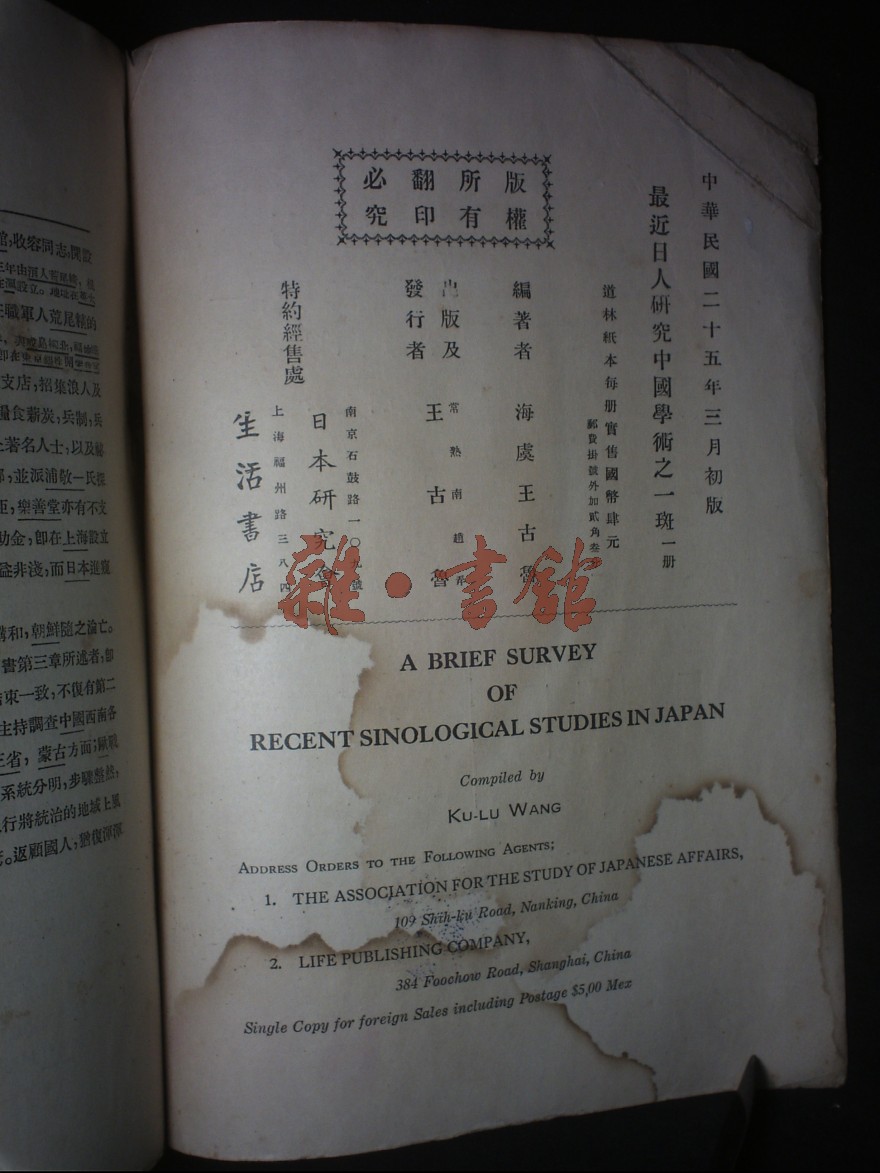 館,收容同志,開設
職軍人荒尾精的
支店,招集浪人及
糧食薪炭,兵制,兵
著名人士,以及
並派浦敬一氏探
樂善堂亦有不支
助金,卽在上海設立
益非淺,而日本進窺
媾和,朝鮮隨之淪亡。
書第三章所述者,卽
結束一致,不復有第二
主持調查中國西南各
三省,蒙古方面;歐戰
系統分明,步驟盤然,
行將統治的地域上風
。返顧國人,猶復渾渾
中華民國二十五年三月初版
最近日人研究中國學術之一斑一册
道林紙本每册實售國幣肆元
郵費掛號外加貳角叁
版權所有
翻印必究
編著者 海虞王古魯
出版及發行者 常熟南趙 王古魯
特約經售處
南京石鼓路一〇九號
日本研究會
上海福州路三八四
生活書店
雜·書館
A BRIEF SURVEY
OF
RECENT SINOLOGICAL STUDIES IN JAPAN
Compiled by
KU-LU WANG
ADDRESS ORDERS TO THE FOLLOWING AGENTS;
1. THE ASSOCIATION FOR THE STUDY OF JAPANESE AFFAIRS,
109 Shih-ku Road, Nanking, China
2. LIFE PUBLISHING COMPANY,
384 Foochow Road, Shanghai, China
Single Copy for foreign Sales including Postage $5,00 Mex